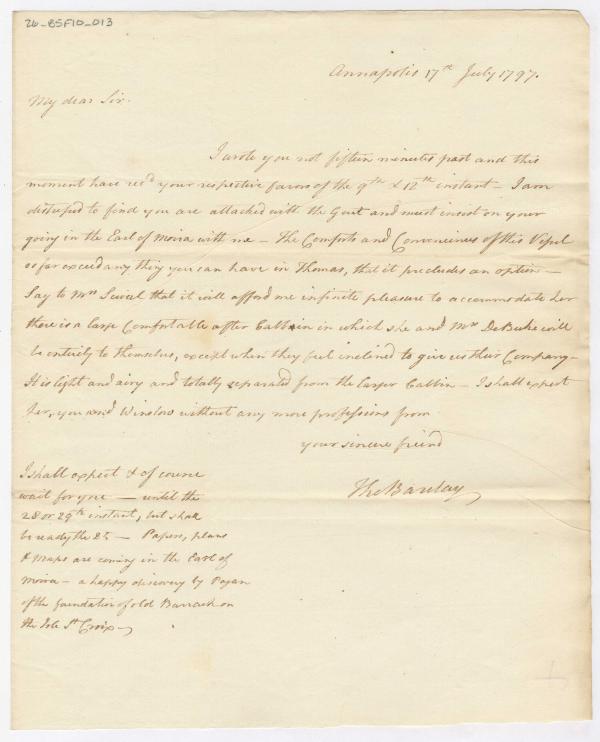 26-BSF10-013
Annapolis 17th July 1797.
My dear Sir.
I wrote you not fifteen minutes past and this
moment have rec'd your respective favors of the 9th & 12th instant - I am
distressed to find you are attacked with the Gout and must insist on your
going in the Earl of Moira with me - The Comforts and Conveniences of this Vessel
so far exceed any thing you can have in Thomas, that it precludes an option -
Say to Mrs Sewel that it will afford me infinite pleasure to accommodate her
there is a Large Comfortable after Cabbin in which she and Mrs DeBuke will
be entirely to themselves, except when they feel inclined to give us their Company -
It is light and airy and totally separated from the larger Cabbin - I shall expect
her, you and Winslow without any more professions from
your sincere friend
Tho Barclay
I shall expect & of course
wait for you - until the
28 or 29th instant, but shall
be ready the 25 - Papers, plans
& maps are coming in the Earl of
Moira - a happy discovery by Pagan
of the foundation of old Barrack on
the Isle St Croix -